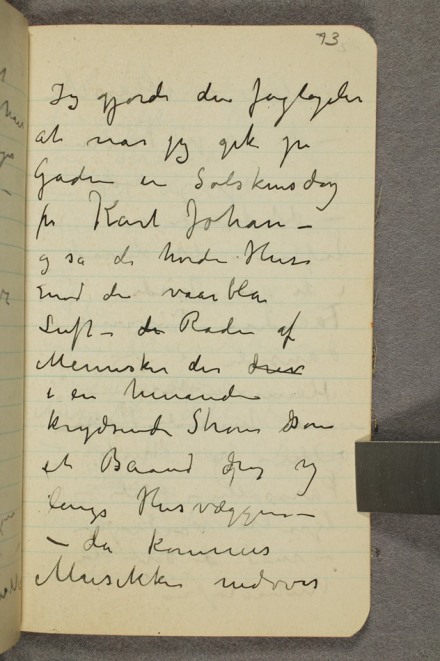 73
Jeg gjorde den Iagtagelse
at naar jeg gik på
Gaden en Solskinsdag
på Karl Johan –
og så de hvide Huse
mod den vaarblaa
Luft – de Rader af
Mennesker der drev
i en hinanden
krydsende Strøm som
et Baand drog sig
langs Husvæggene –
– da kommer
Musikken nedover